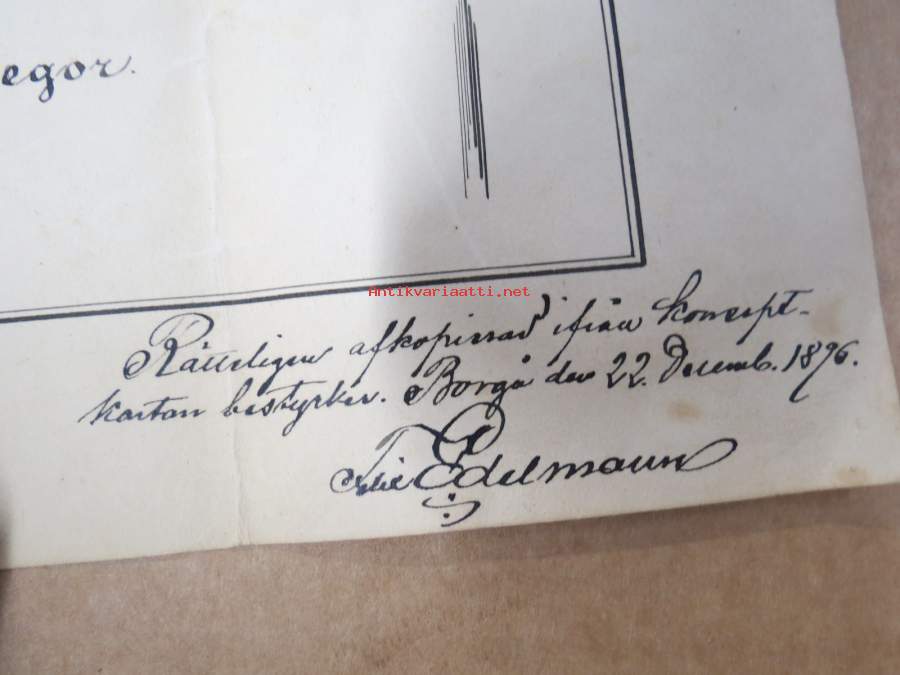 egor.
Antikvariaatti.net
Rätteligen afkopierad ifrån konsept-
kartan bestyrker. Borgå den 22. Decemb. 1896.
Edelmann